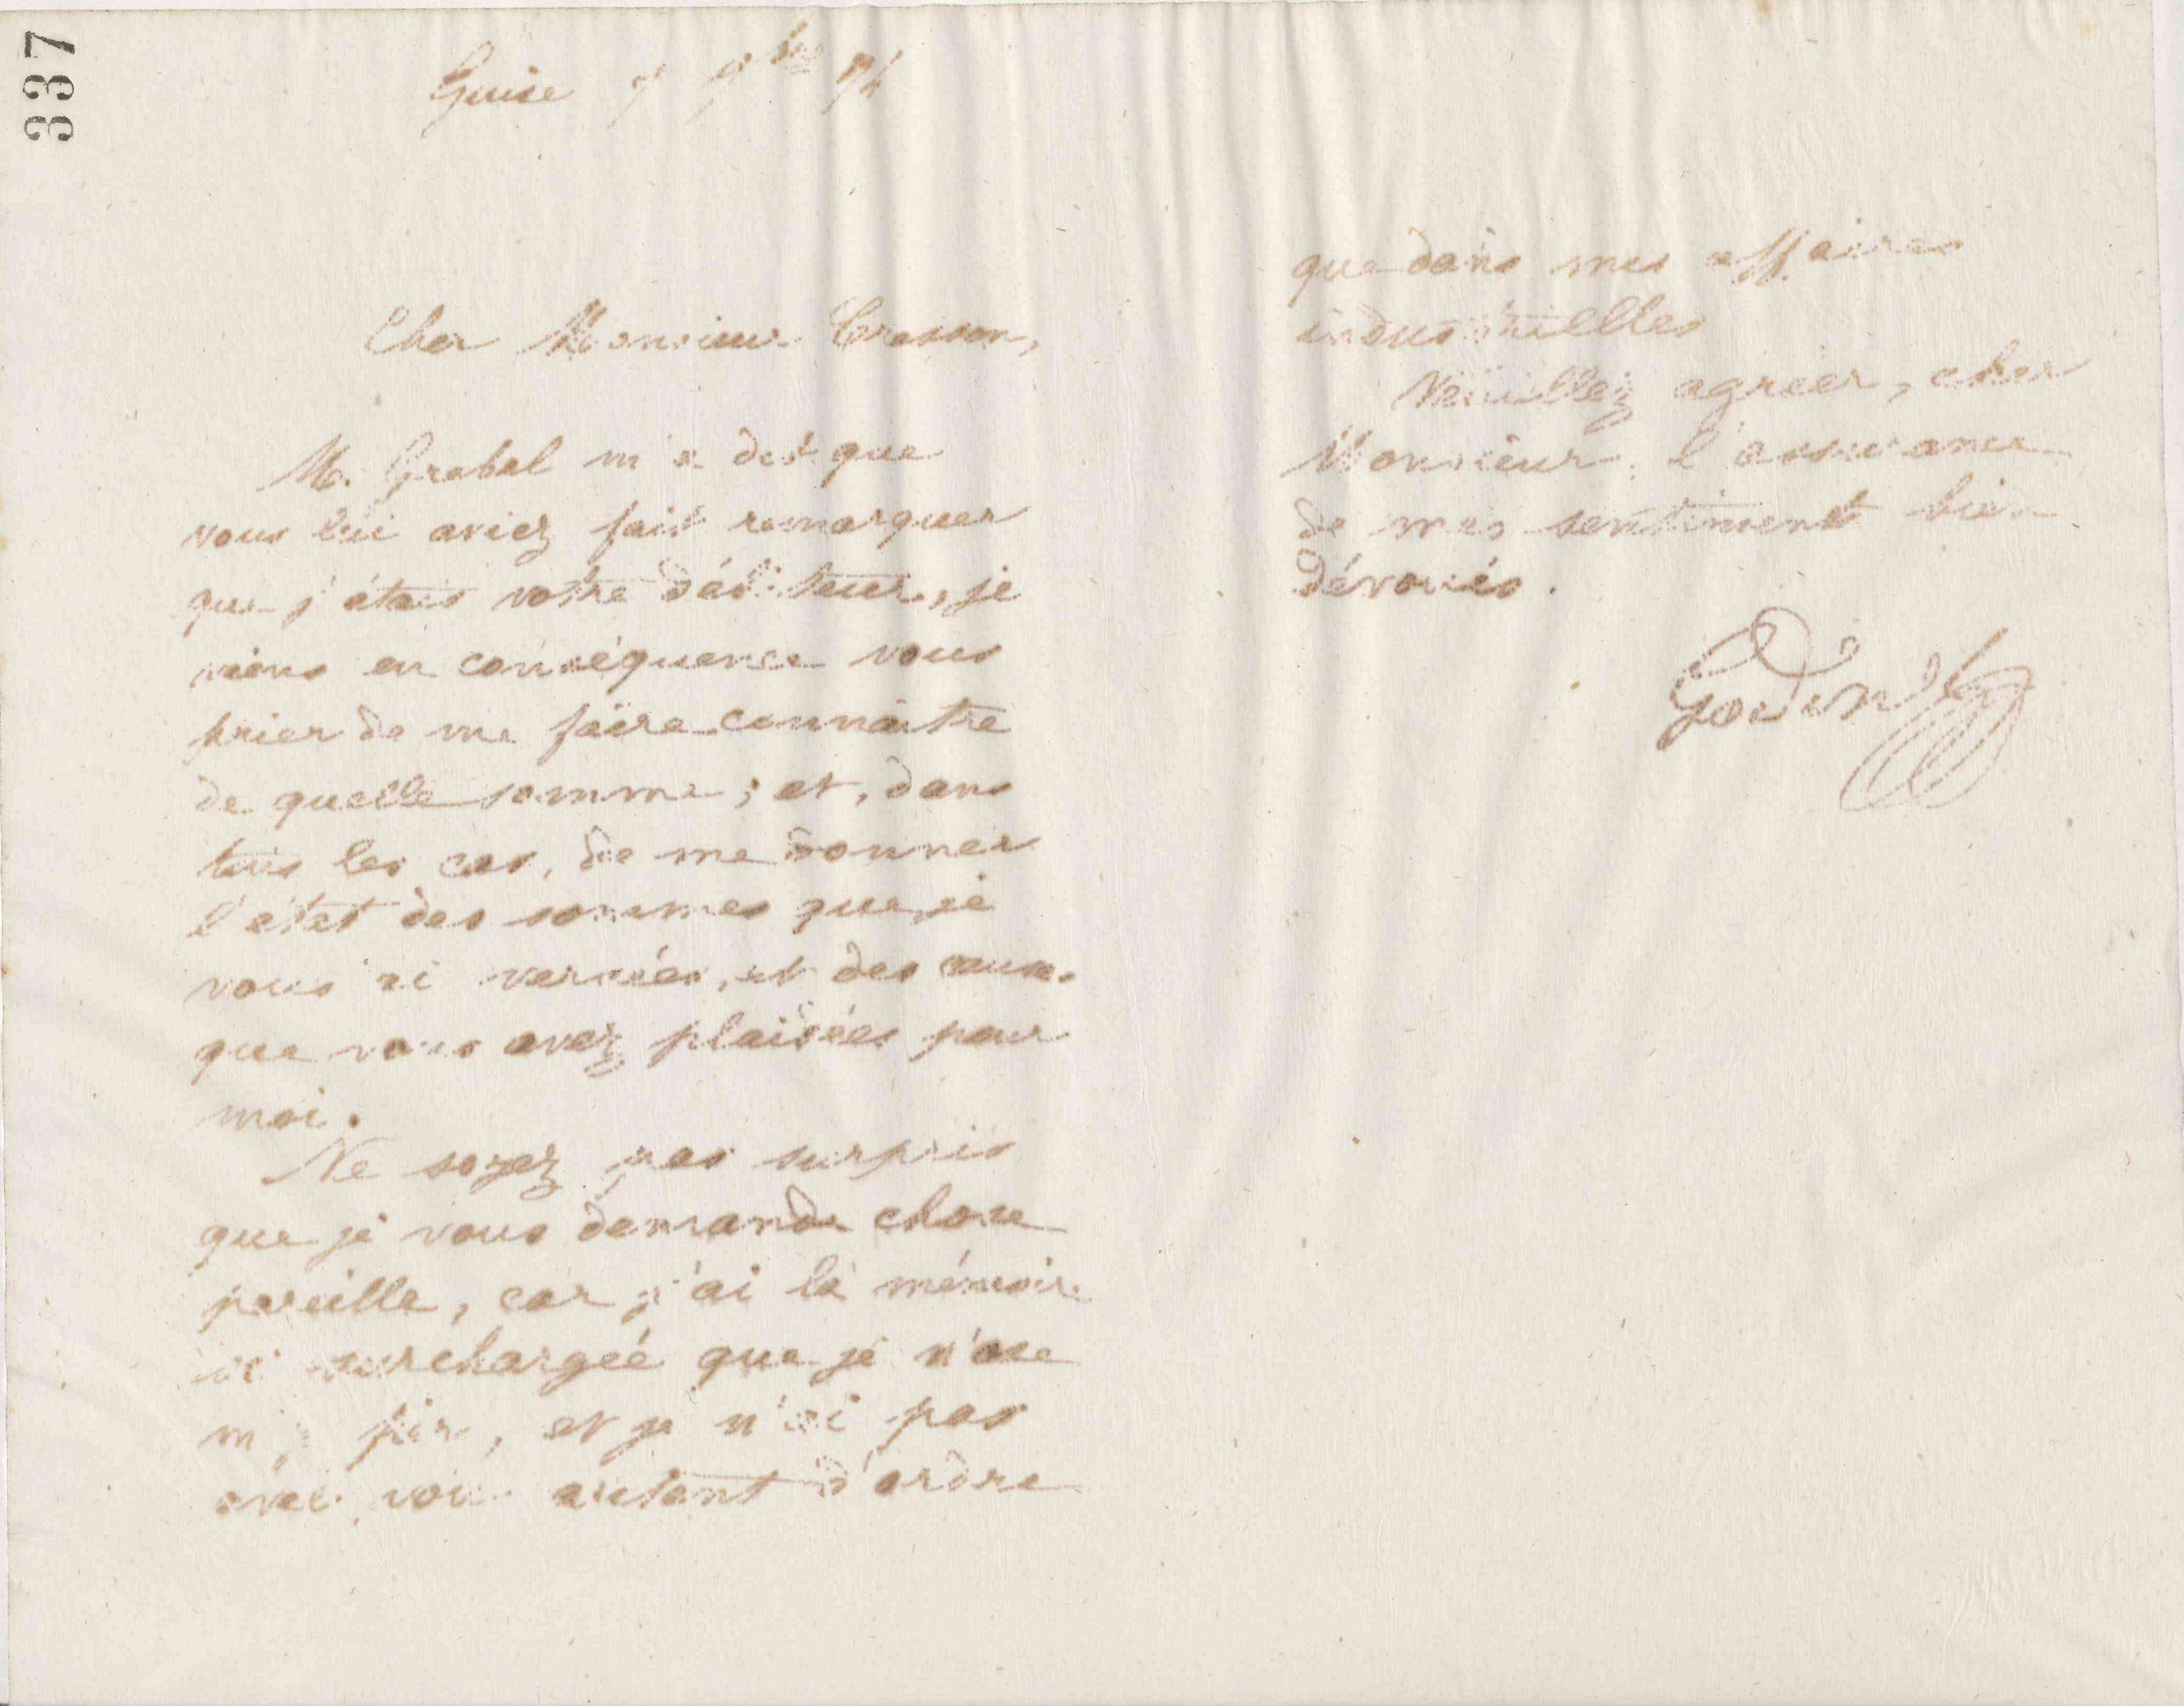 337
Guise 7 9bre 74
Cher Monsieur Crasson,
M. Grebel m'a dit que
vous lui aviez fait remarquer
que j'étais votre débiteur, je
viens en conséquence vous
prier de me faire connaître
de quelle somme ; et, dans
tous les cas, de me donner
l'état des sommes que je
vous ai versées, et des causes
que vous avez plaidées pour
moi.
Ne soyez pas surpris
que je vous demande chose
pareille, car j'ai la mémoire
si surchargée que je n'ose
m'y fier, et je n'ai pas
avec vous autant d'ordre
que dans mes affaires
industrielles
Veuillez agréer, cher
Monsieur, l'assurance
de mes sentiments bien
dévoués.
Godin